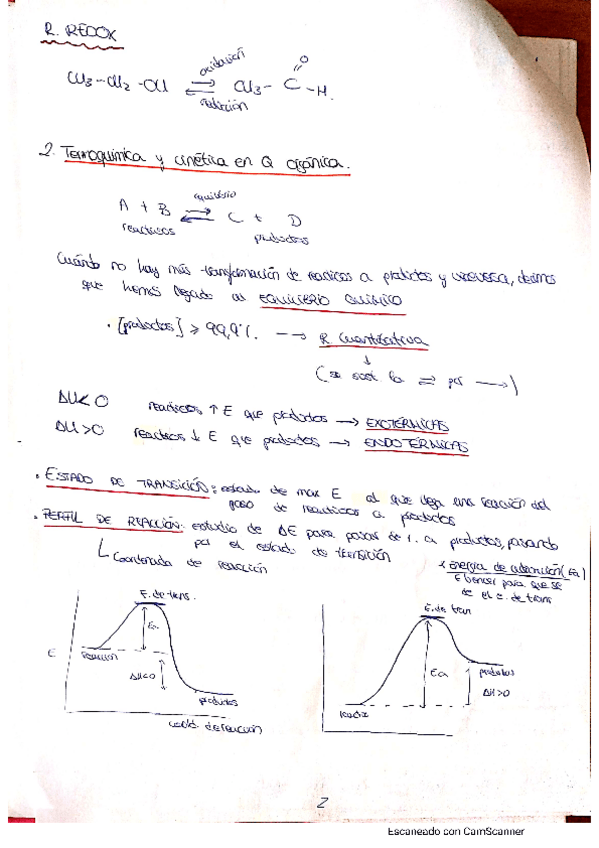 R. REDOX
CH3-CH2-OH ⇌ CH3-C-H.
oxidación
reducción
O
2. Termoquímica y cinética en Q orgánica.
A + B ⇌ C + D
equilibrio
reactivos
productos
Cuándo no hay más transformación de reactivos a productos y viceversa, decimos
que hemos llegado al EQUILIBRIO QUÍMICO
· [productos] ≥ 99,9%. --→ R. Cuantitativa
↓
(se sust la ⇌ por →)
ΔH<0 reactivos ↑ E que productos → EXOTÉRMICAS
ΔH>0 reactivos ↓ E que productos → ENDOTÉRMICAS
· ESTADO DE TRANSICIÓN: estado de max E al que llega una reacción del
paso de reactivos a productos
· PERFIL DE REACCIÓN: estudio de ΔE para pasar de r. a productos, pasando
por el estado de transición
Coordenada de reacción
* energía de activación (Ea)
E para que se
de el e. de trans
E. de trans.
E
Ea
reacción
ΔH<0
productos
coord. de reacción
E. de tran
Ea
productos
ΔH>0
2
Escaneado con CamScanner